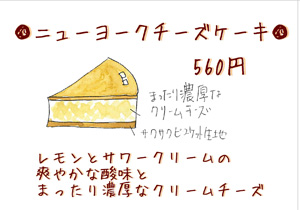 ニューヨークチーズケーキ
560円
まったり濃厚な
クリームチーズ
サクサクビスケット生地
レモンとサワークリームの
爽やかな酸味と
まったり濃厚なクリームチーズ